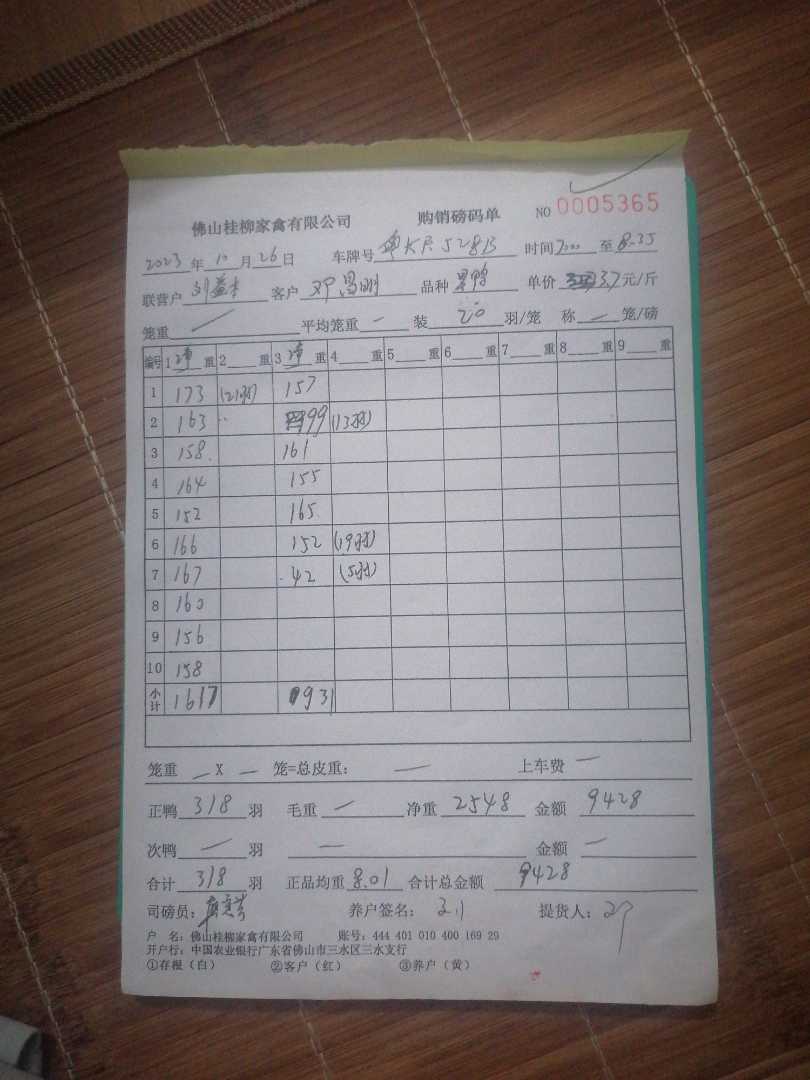 佛山桂柳家禽有限公司 购销磅码单 NO 0005365
2023年10月26日 车牌号 粤KR528B 时间7:00至8:35
联营户 客户 邓昌明 品种 单价 3.7元/斤
笼重 / 平均笼重 — 装 20 羽/笼 称 — 笼/磅
编号 1 净 重 2 重 3 净 重 4 重 5 重 6 重 7 重 8 重 9 重
1 173 (21羽) 157
2 163 99 (13羽)
3 158 161
4 164 155
5 152 165
6 166 152 (19羽)
7 167 42 (5羽)
8 160
9 156
10 158
小计 1617 931
笼重 — X — 笼=总皮重: — 上车费 —
正鸭 318 羽 毛重 — 净重 2548 金额 9428
次鸭 — 羽 — 金额 —
合计 318 羽 正品均重 8.01 合计总金额 9428
司磅员: 养户签名: 提货人:
户 名: 佛山桂柳家禽有限公司 账号: 444 401 010 400 169 29
开户行: 中国农业银行广东省佛山市三水区三水支行
①存根(白) ②客户(红) ③养户(黄)